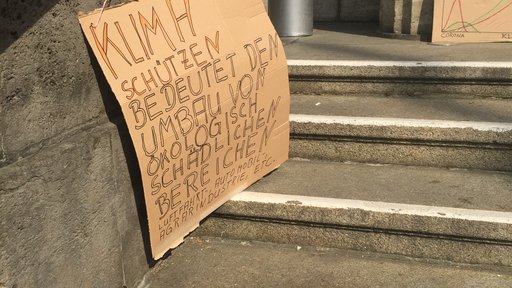 KLIMA
SCHÜTZEN
BEDEUTET DEN
UMBAU VOM
ÖKOLOGISCH
SCHÄDLICHEN
BEREICHEN
LUFTFAHRT, AUTOMOBIL,
AGRARINDUSTRIE, ETC.
CORONA